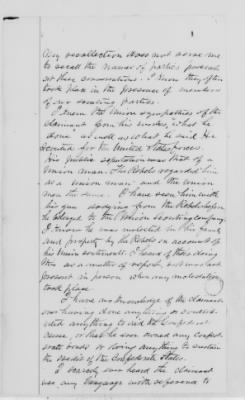 My recollection does not serve me
to recall the names of parties present
at these conversations. I know they often
took place in the presence of members
of our scouting parties.
I know the Union sympathies of the
claimant from his works, what he
done as well as what he said. He
scouted for the United States forces.
His public reputation was that of a
Union man. The Rebels regarded him
as a Union man and the Union
men the same. I have seen him with
his gun
he belonged to the scouting company.
I know he was molested in his
and property by the Rebels on account of
his Union sentiments. I heard of these doing
then as a matter of report, but was not
present in person when any molestation
took place.
I have no knowledge of the claimant
ever having done anything or contrib-
uted anything to aid the Confederate
cause, or that he ever owned any Confed-
erate bonds or doing anything to sustain
the credit of the Confederate States.
I rarely ever heard the claimant
use any language with reference to